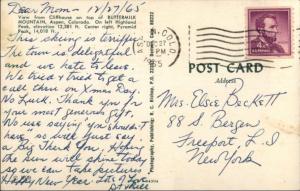 Dear Mom - 12/27/65
View from Cliffhouse on top of BUTTERMILK
MOUNTAIN, Aspen, Colorado. On left Highland
Peak, elevation 12,381 ft. Center right, Pyramid
Peak, 14,018 ft.
This skiing is terrific.
The town is delightful
and we hate to leave.
We tried & tried to get a
call thru on Xmas Day.
No luck. Thank you for
your most generous gift.
We were saying you shouldn't
have, so will just say
a Big Thank You. Hoping
the sun will shine today
so we can take pictures.
Happy New Year. Lots of Love
COLO.
DEC 27
PM
POST CARD
Address
4¢
Mrs. Elsie Beckett
88 S. Bergen
Freeport, L.I
New York